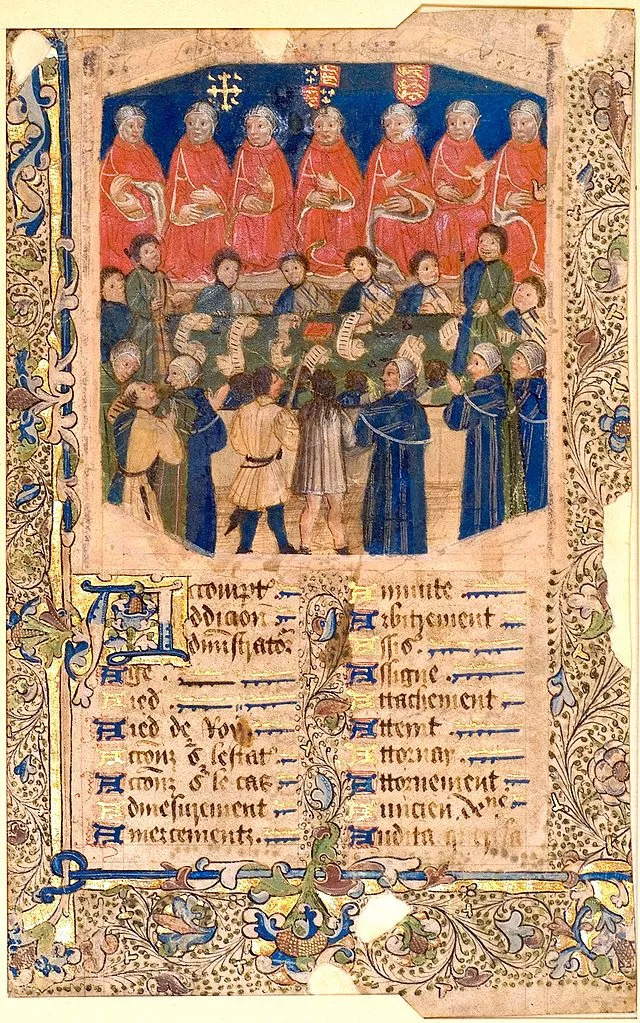 Accompt
Addicion
Administrator
Age
Aied
Aied de Roy
Accionz sr lestat
Accionz sr le cas
Admesurement
Amercementz
Annuite
Arbitrement
Assis
Assigne
Attachement
Atteint
Attornay
Attornement
Auncien
Audita